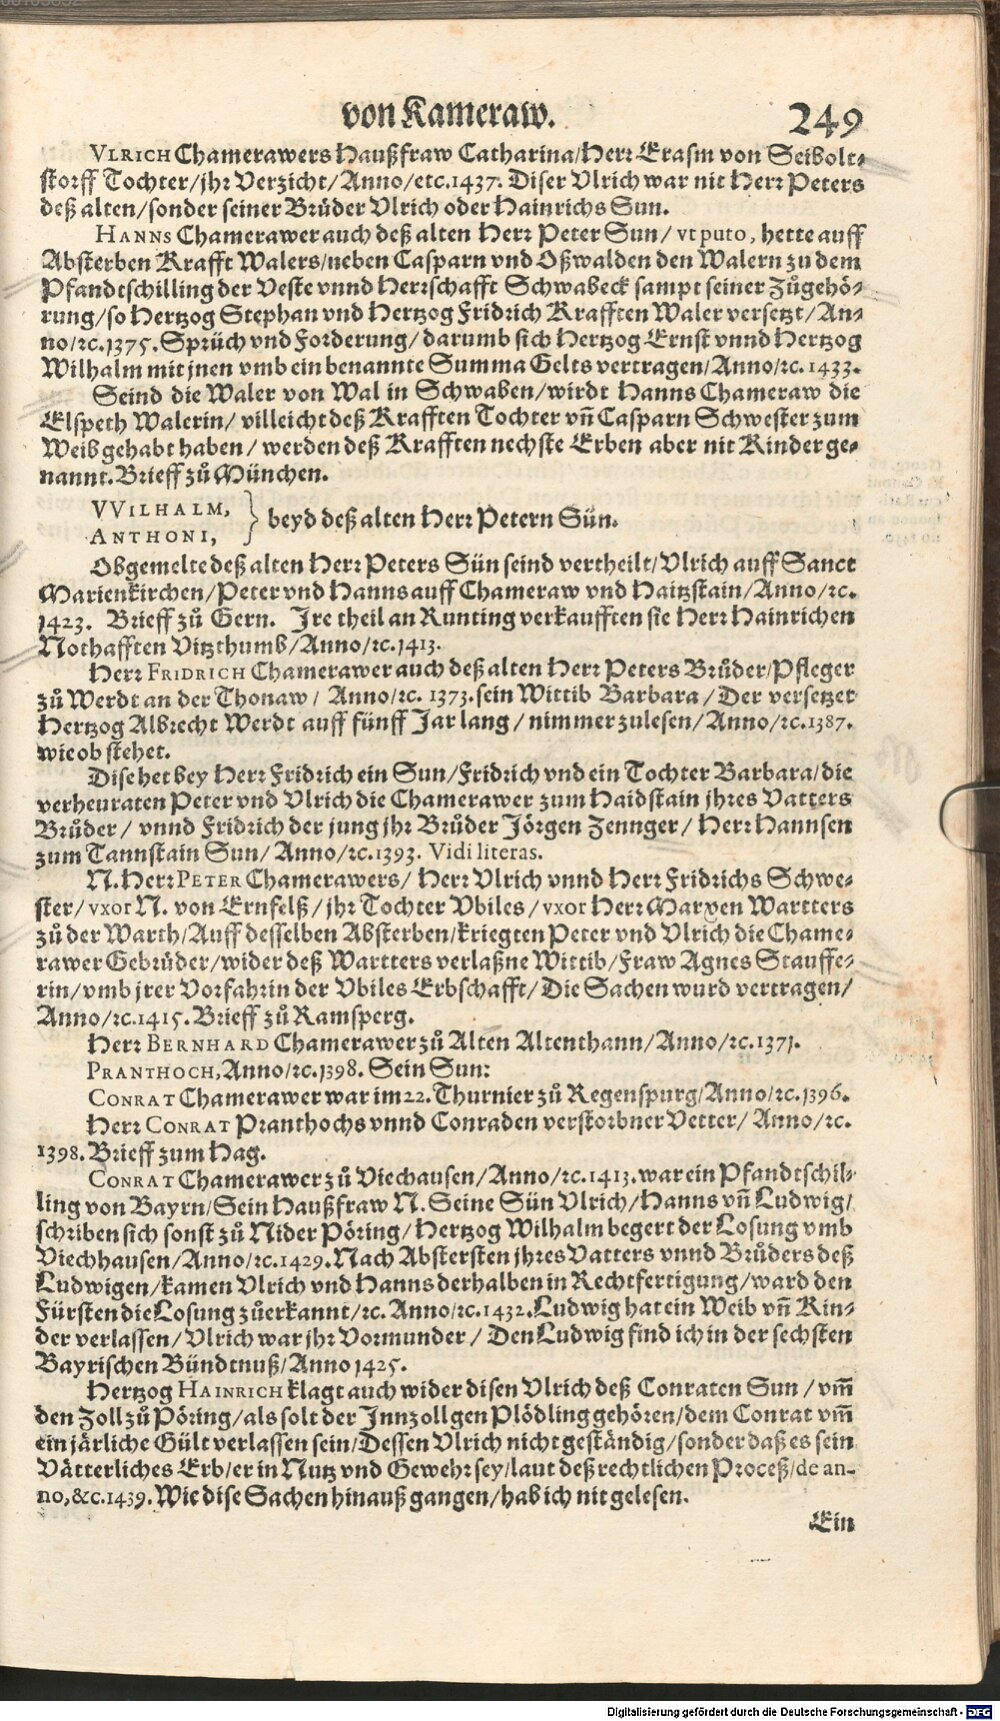 von Kameraw. 249
VLRICH Chamerawers Haußfraw Catharina/Herr Erasm von Seibolt-
storff Tochter/jhr Verzicht/Anno/etc.1437. Diser Vlrich war nit Herr Peters
deß alten/sonder seiner Brüder Vlrich oder Hainrichs Sun.
HANNS Chamerawer auch deß alten Herr Peter Sun/ vt puto, hette auff
Absterben Krafft Walers/neben Casparn vnd Oßwalden den Walern zu dem
Pfandtschilling der Veste vnnd Herrschafft Schwabeck sampt seiner Zůgehö-
rung/so Hertzog Stephan vnd Hertzog Fridrich Krafften Waler versetzt/An-
no/ꝛc.1375. Sprüch vnd Forderung/darumb sich Hertzog Ernst vnnd Hertzog
Wilhalm mit jnen vmb ein benannte Summa Gelts vertragen/Anno/ꝛc. 1433.
Seind die Waler von Wal in Schwaben/wirdt Hanns Chameraw die
Elspeth Walerin/ villeicht deß Krafften Tochter vñ Casparn Schwester zum
Weib gehabt haben/ werden deß Krafften nechste Erben aber nit Kinder ge-
nannt. Brieff zů München.
VVILHALM,
ANTHONI, } beyd deß alten Herr Petern Sün.
Obgemelte deß alten Herr Peters Sün seind vertheilt/Vlrich auff Sanct
Marienkirchen/Peter vnd Hanns auff Chameraw vnd Haitzstain/Anno/ꝛc.
1423. Brieff zů Gern. Jre theil an Runting verkaufften sie Herr Hainrichen
Nothafften Vitzthumb/Anno/ꝛc.1413.
Herr FRIDRICH Chamerawer auch deß alten Herr Peters Brůder/Pfleger
zů Werdt an der Thonaw/ Anno/ꝛc. 1373. sein Wittib Barbara/Der versetzet
Hertzog Albrecht Werdt auff fünff Jar lang/nimmer zulesen/Anno/ꝛc.1387.
wie ob stehet.
Dise het bey Herr Fridrich ein Sun/Fridrich vnd ein Tochter Barbara/die
verheuraten Peter vnd Vlrich die Chamerawer zum Haidstain jhres Vatters
Brůder/ vnnd Fridrich der jung jhr Brůder Jörgen Zennger/ Herr Hannsen
zum Tannstain Sun/ Anno/ꝛc.1393. Vidi literas.
N. Herr PETER Chamerawers/ Herr Vlrich vnnd Herr Fridrichs Schwe-
ster/vxor N. von Ernfelß/jhr Tochter Vbiles/vxor Herr Marxen Wartters
zů der Warth/Auff desselben Absterben/kriegten Peter vnd Vlrich die Chame-
rawer Gebrüder/wider deß Wartters verlaßne Wittib/Fraw Agnes Stauffe-
rin/vmb jrer Vorfahrin der Vbiles Erbschafft/Die Sachen wurd vertragen/
Anno/ꝛc.1415. Brieff zů Ramsperg.
Herr BERNHARD Chamerawer zů Alten Altenthann/Anno/ꝛc.1371.
PRANTHOCH, Anno/ꝛc.1398. Sein Sun:
CONRAT Chamerawer war im 22. Thurnier zů Regenspurg/Anno/ꝛc.1396.
Herr CONRAT Pranthochs vnnd Conraden verstorbner Vetter/ Anno/ꝛc.
1398. Brieff zum Hag.
CONRAT Chamerawer zů Viechausen/Anno/ꝛc.1413. war ein Pfandtschil-
ling von Bayrn/Sein Haußfraw N. Seine Sün Vlrich/Hanns vñ Ludwig/
schriben sich sonst zů Nider Pöring/Hertzog Wilhalm begert der Losung vmb
Viechhausen/Anno/ꝛc.1429. Nach Abstersten jhres Vatters vnnd Brůders deß
Ludwigen/kamen Vlrich vnd Hanns derhalben in Rechtfertigung/ward den
Fürsten die Losung zůerkannt/ꝛc. Anno/ꝛc.1432. Ludwig hat ein Weib vñ Kin-
der verlassen/Vlrich war jhr Vormunder/ Den Ludwig find ich in der sechsten
Bayrischen Bündtnuß/Anno 1425.
Hertzog HAINRICH klagt auch wider disen Vlrich deß Conraten Sun/vm̃
den Zoll zů Pöring/als solt der Jnnzoll gen Plödling gehören/dem Conrat vm̃
ein järliche Gült verlassen sein/Dessen Vlrich nicht geständig/sonder daß es sein
Vätterliches Erb/er in Nutz vnd Gewehr sey/laut deß rechtlichen Proceß/de an-
no,&c.1439. Wie dise Sachen hinauß gangen/hab ich nit gelesen.
Ein
Digitalisierung gefördert durch die Deutsche Forschungsgemeinschaft - DFG